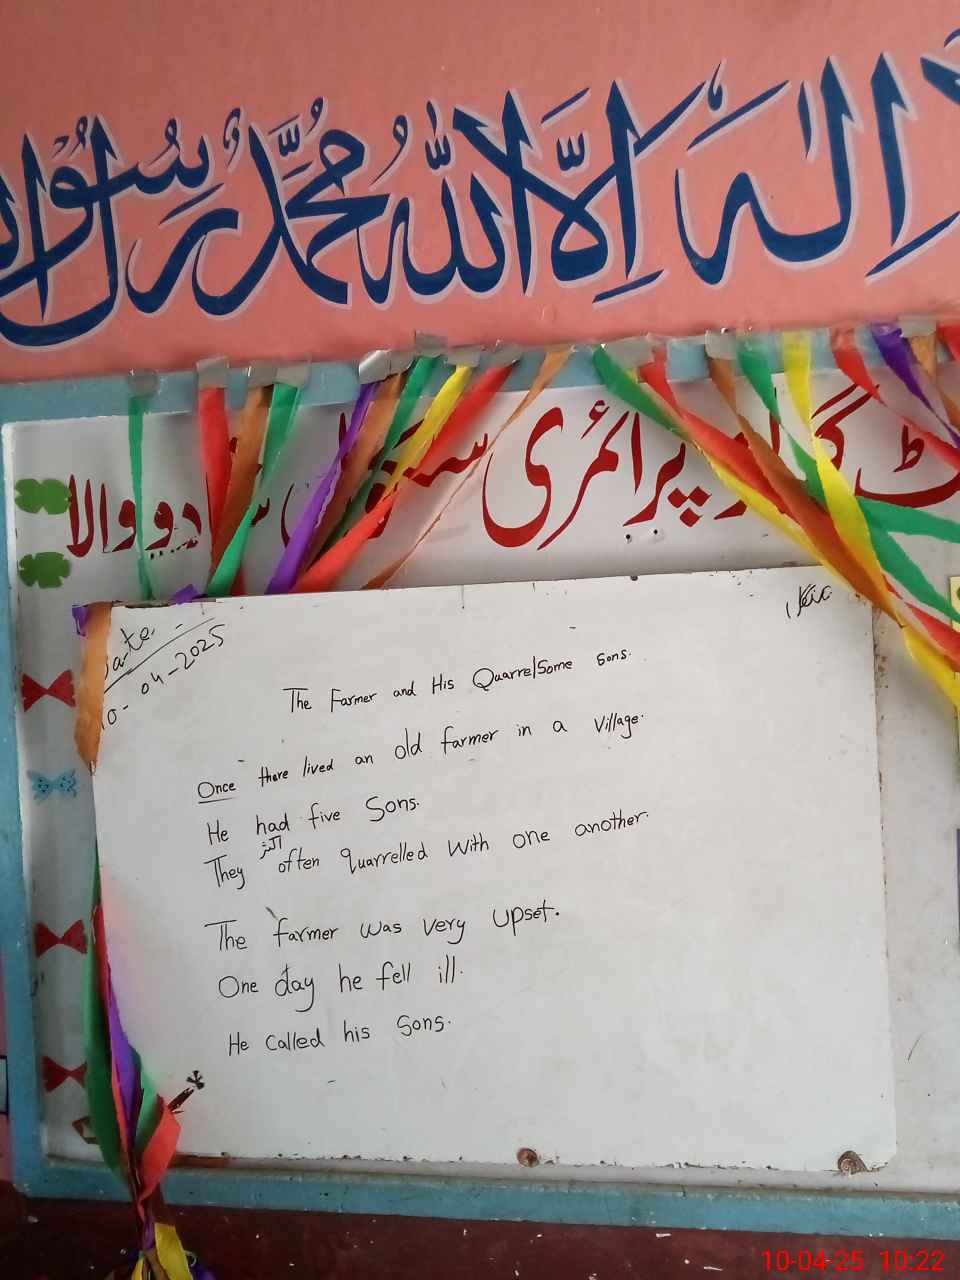 لا الہ الا اللہ محمد رسول
گورنمنٹ گرلز پرائمری سکول والا
Date
10-04-2025
The Farmer and His Quarrelsome sons.
Once there lived an old farmer in a village.
He had five Sons.
اکثر
They often quarrelled with one another.
The farmer was very upset.
One day he fell ill.
He called his sons.
10-04-25 10:22